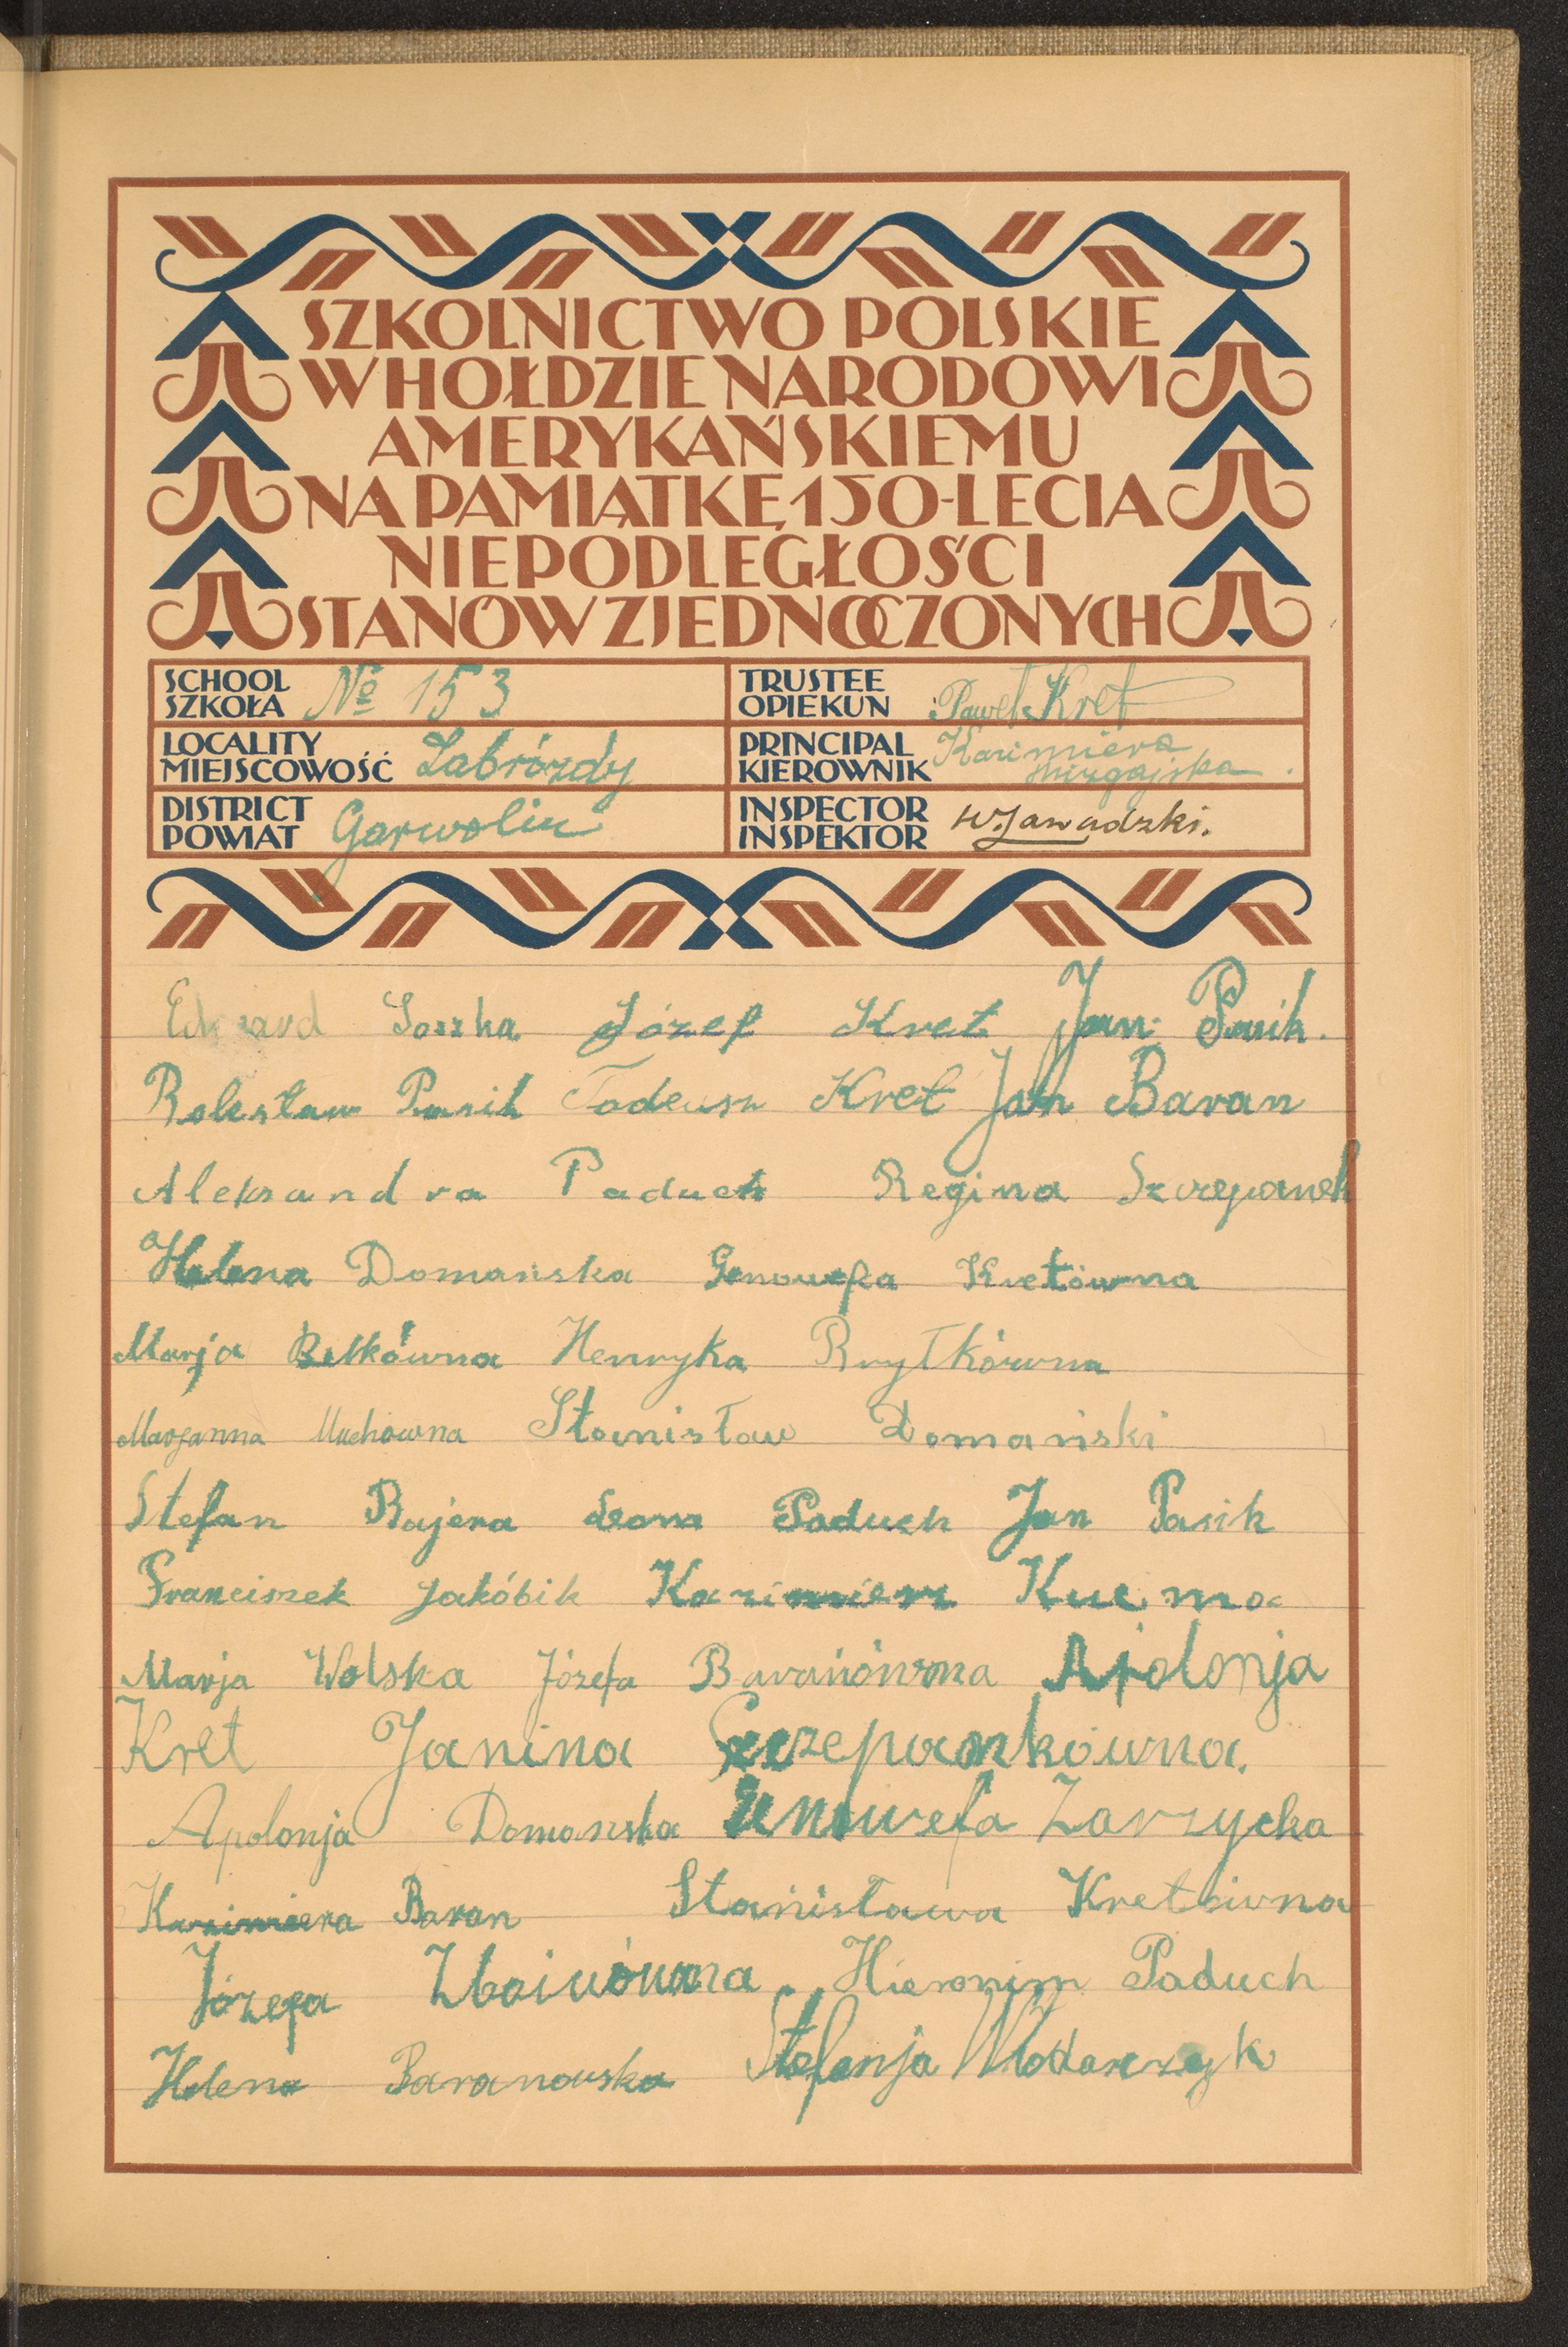 SZKOLNICTWO POLSKIE
W HOŁDZIE NARODOWI
AMERYKAŃSKIEMU
NA PAMIĄTKĘ 150-LECIA
NIEPODLEGŁOŚCI
STANÓW ZJEDNOCZONYCH
SCHOOL
SZKOŁA
№ 153
TRUSTEE
OPIEKUN
Paweł Kret
LOCALITY
MIEJSCOWOŚĆ
Zabrózdy
PRINCIPAL
KIEROWNIK
Kazimiera
DISTRICT
POWIAT
Garwolin
INSPECTOR
INSPEKTOR
W. Zawadzki.
Edward Soszka Józef Kret Jan Pasik.
Bolesław Pasik Tadeusz Kret Jan Baran
Aleksandra Paduch Regina Szczepanek
Helena Domańska Genowefa Kretówna
Marja Bełkówna Henryka Brytkówna
Marjanna Muchówna Stanisław Domański
Stefan Bajera Leon Paduch Jan Pasik
Franciszek Jakóbik Kazimierz Kucma
Marja Wolska Józefa Baranówna Apolonja
Kret Janina Szczepankówna.
Apolonja Domanska Genowefa Zarzycka
Kazimiera Baran Stanisława Kretówna
Józefa Hieronim Paduch
Helena Baranowska Stefanja Włodarczyk